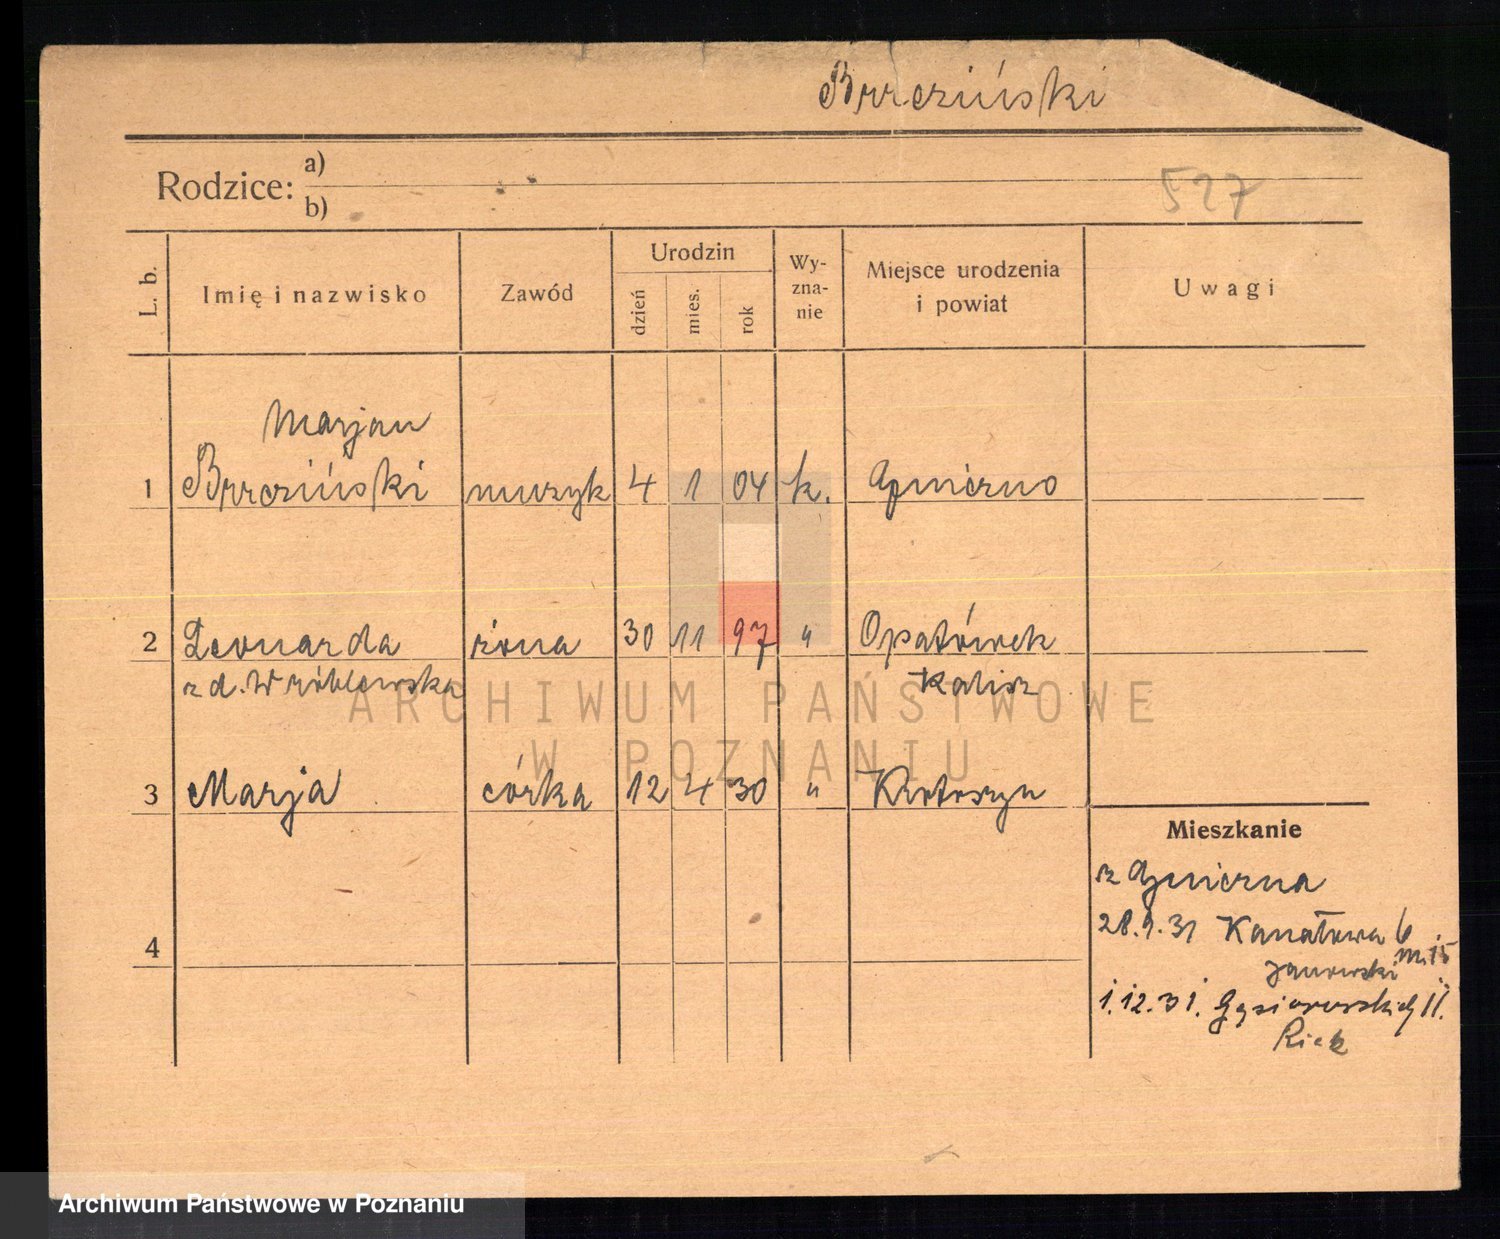 Brzeziński
Rodzice: a)
b)
527
L. b.
Imię i nazwisko
Zawód
Urodzin
dzień
mies.
rok
Wy-
zna-
nie
Miejsce urodzenia
i powiat
Uwagi
Marjan
1 Brzeziński muzyk 4 1 04 k. Gniezno
2 Leonarda żona 30 11 97 " Opatówek
z d. Wróblewska Kalisz
3 Marja córka 12 4 30 " Krotoszyn
Mieszkanie
z Gniezna
28.9.31 Kanałowa 6
m. 15
Janowski
4
1.12.31. Gąsiorowskich 11.
ARCHIWUM PAŃSTWOWE
W POZNANIU
Archiwum Państwowe w Poznaniu